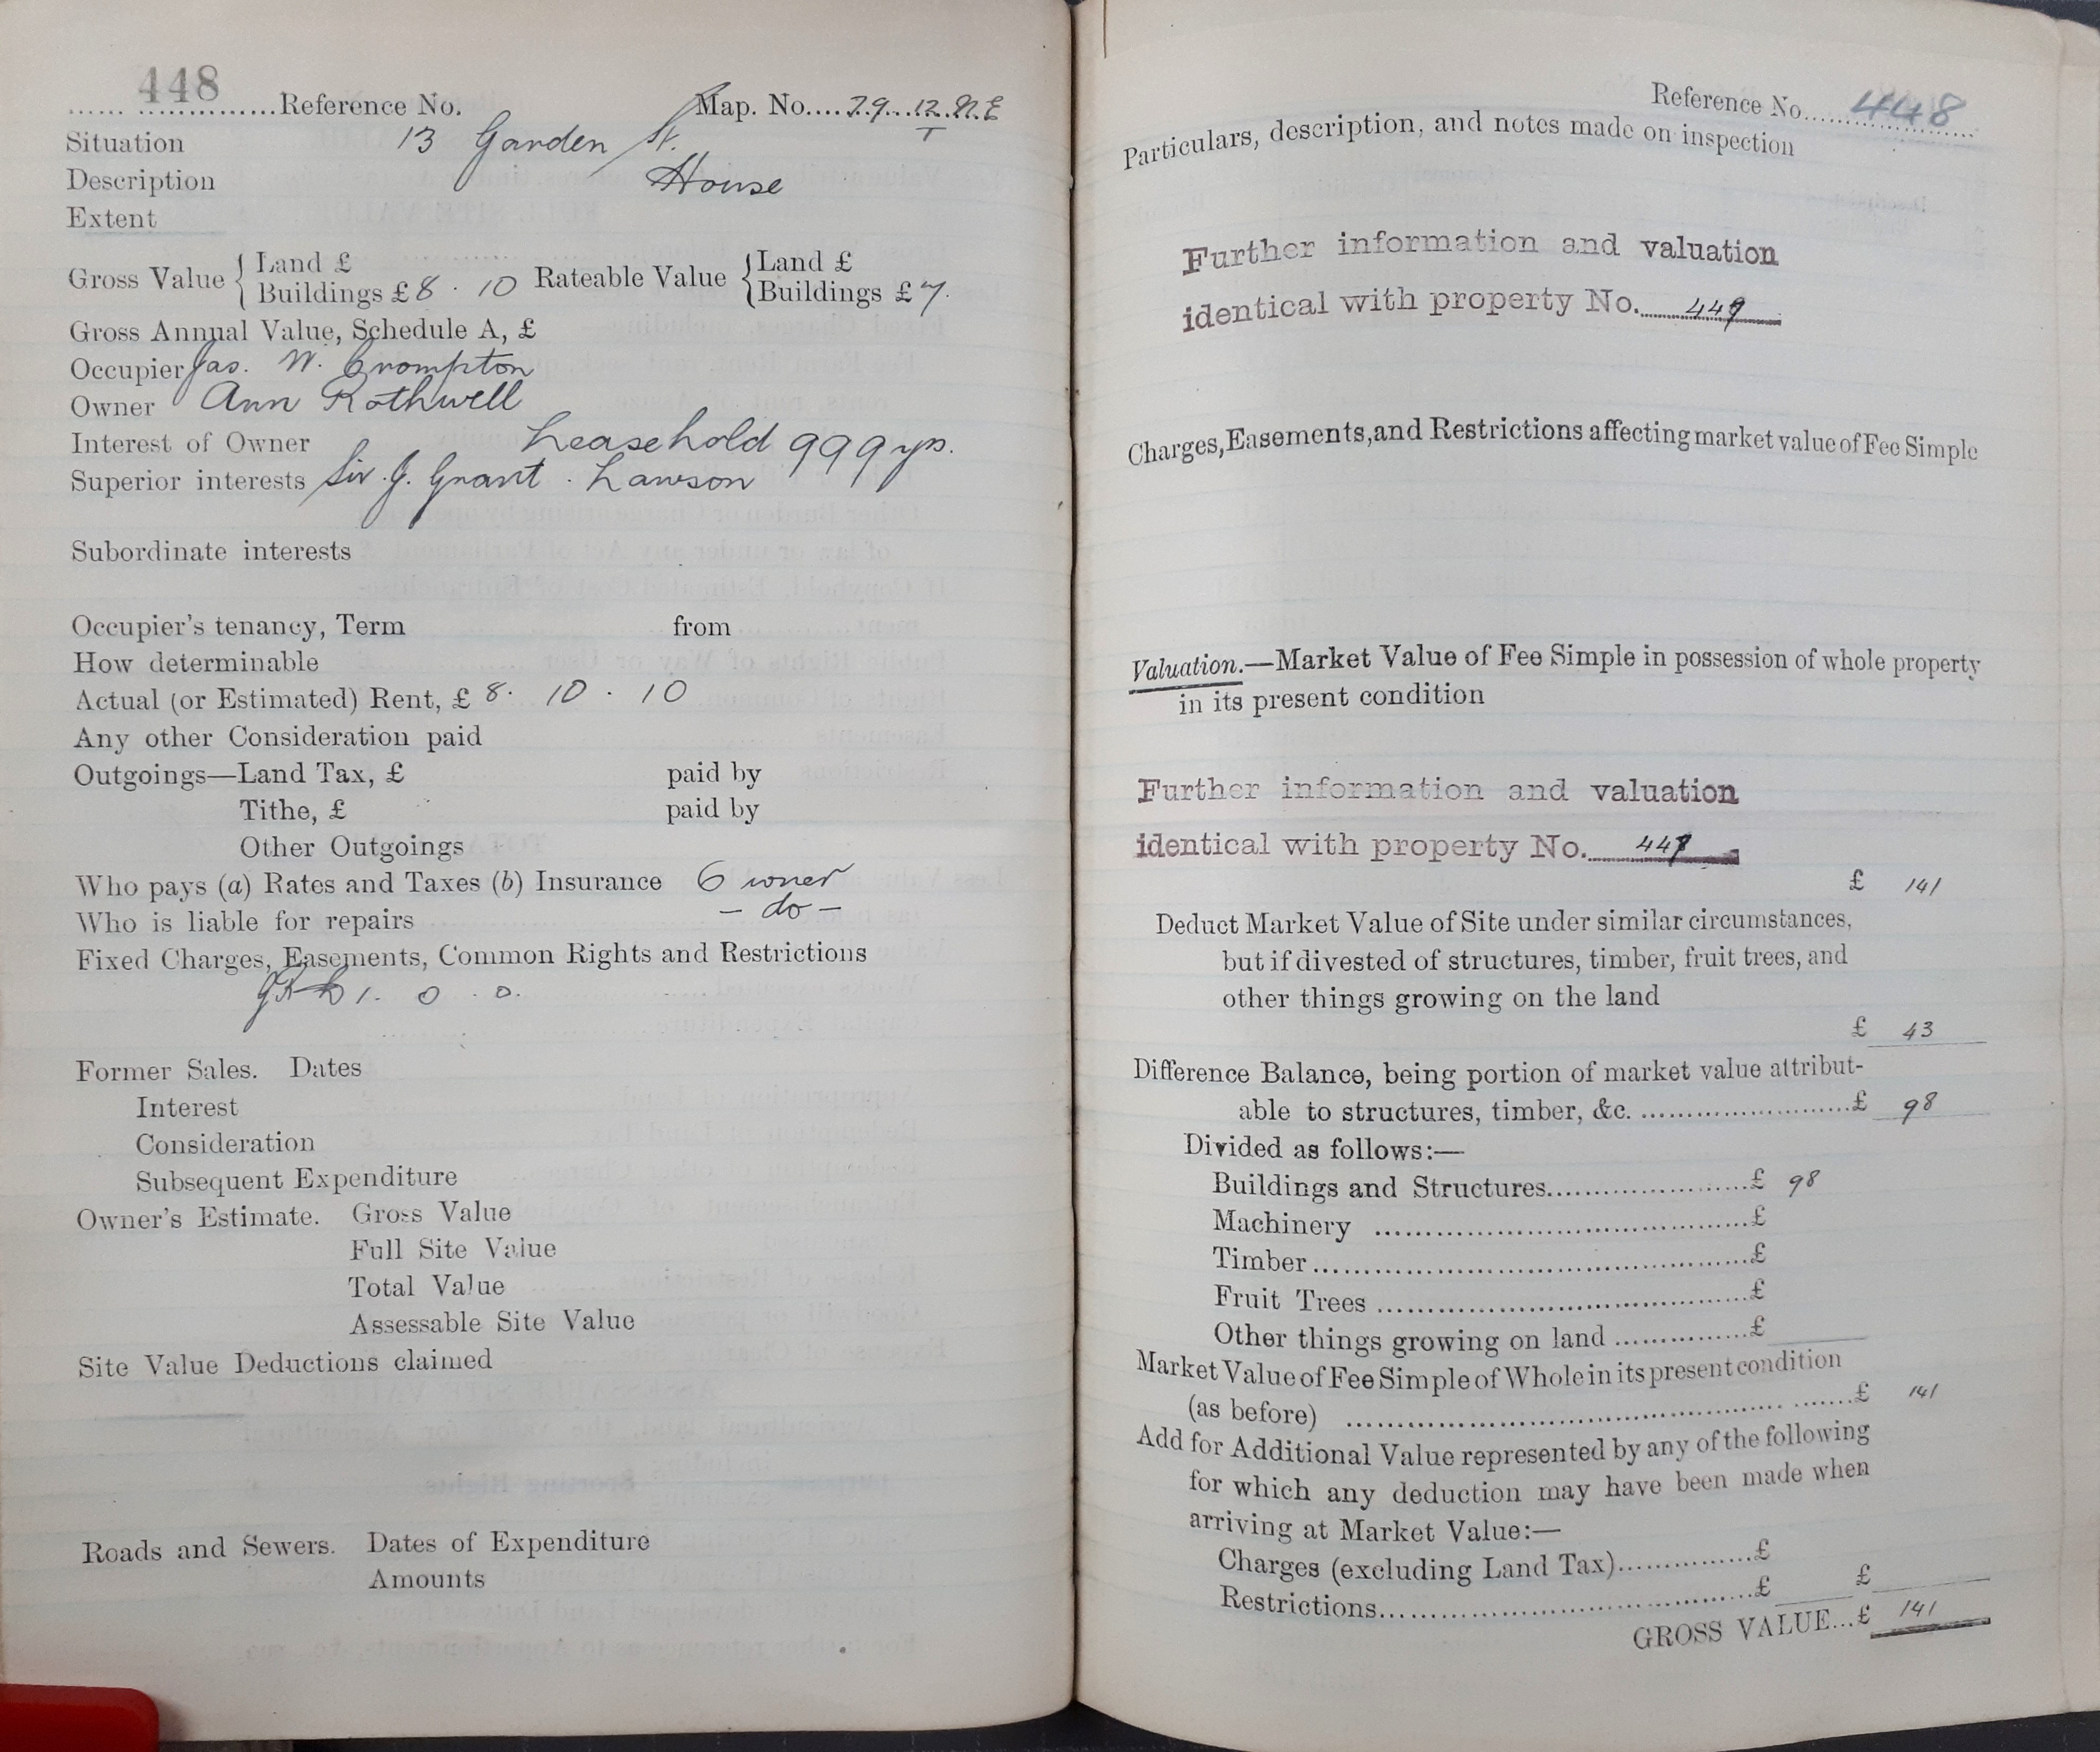 448
...... ..............Reference No. Map. No....79...12.N.E
Situation 13 Garden St.
Description House
Extent
Gross Value { Land £ Rateable Value { Land £
Buildings £ 8 . 10 Buildings £ 7.
Gross Annual Value, Schedule A, £
Occupier Jas. W. Crompton
Owner Ann Rothwell
Interest of Owner Leasehold 999 yrs.
Superior interests Sir J. Grant . Lawson
Subordinate interests
Occupier's tenancy, Term from
How determinable
Actual (or Estimated) Rent, £ 8. 10 . 10
Any other Consideration paid
Outgoings—Land Tax, £ paid by
Tithe, £ paid by
Other Outgoings
Who pays (a) Rates and Taxes (b) Insurance Owner
Who is liable for repairs - do -
Fixed Charges, Easements, Common Rights and Restrictions
1. 0 . 0.
Former Sales. Dates
Interest
Consideration
Subsequent Expenditure
Owner's Estimate. Gross Value
Full Site Value
Total Value
Assessable Site Value
Site Value Deductions claimed
Roads and Sewers. Dates of Expenditure
Amounts
Reference No. 448
Particulars, description, and notes made on inspection
Further information and valuation
identical with property No. 449
Charges, Easements, and Restrictions affecting market value of Fee Simple
Valuation.—Market Value of Fee Simple in possession of whole property
in its present condition
Further information and valuation
identical with property No. 447
£ 141
Deduct Market Value of Site under similar circumstances,
but if divested of structures, timber, fruit trees, and
other things growing on the land
£ 43
Difference Balance, being portion of market value attribut-
able to structures, timber, &c. ........................£ 98
Divided as follows:—
Buildings and Structures.......................£ 98
Machinery ..........................................£
Timber.................................................£
Fruit Trees ..........................................£
Other things growing on land ................£
Market Value of Fee Simple of Whole in its present condition
(as before) .................................................£ 141
Add for Additional Value represented by any of the following
for which any deduction may have been made when
arriving at Market Value:—
Charges (excluding Land Tax)................£
Restrictions...........................................£ £
GROSS VALUE...£ 141